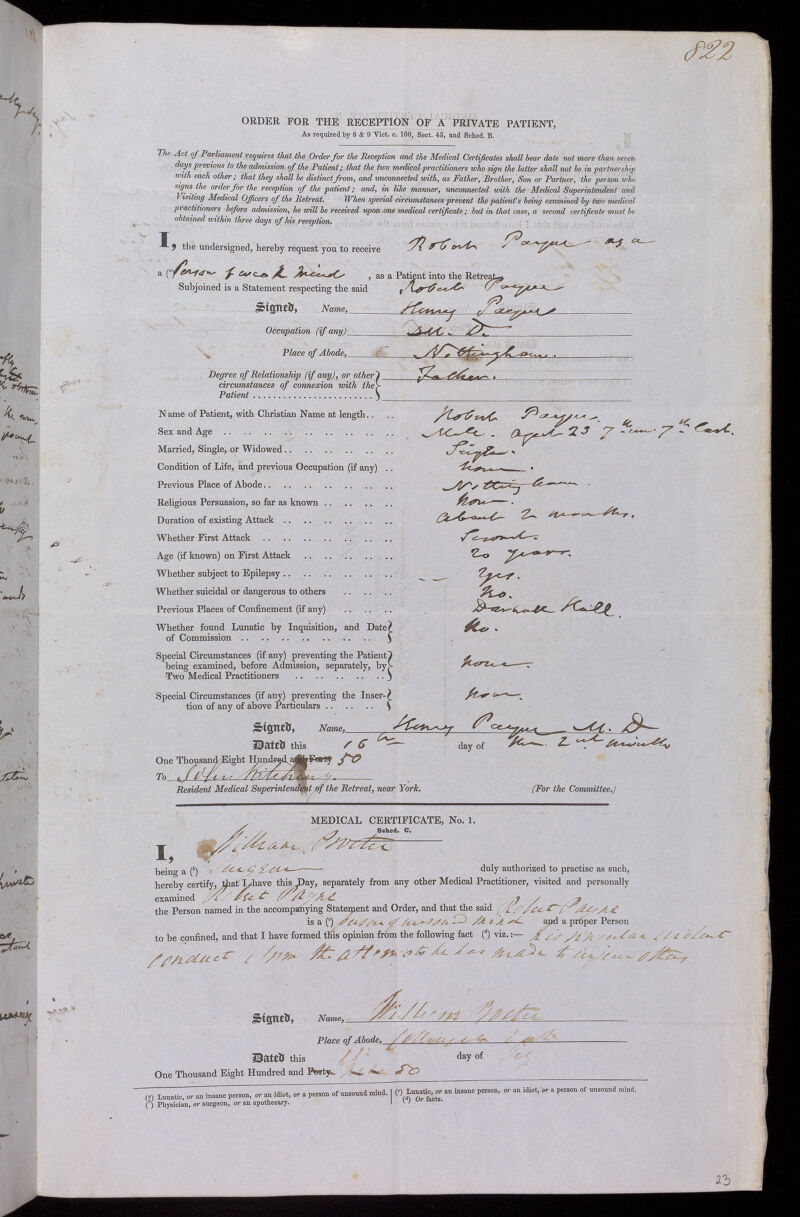 822
ORDER FOR THE RECEPTION OF A PRIVATE PATIENT,
As required by 8 & 9 Vict. c. 100, Sect. 45, and Sched. B.
The Act of Parliament requires that the Order for the Reception and the Medical Certificates shall bear date not more than seven
days previous to the admission of the Patient; that the two medical practitioners who sign the latter shall not be in partnership
with each other; that they shall be distinct from, and unconnected with, as Father, Brother, Son or Partner, the person who
signs the order for the reception of the patient; and, in like manner, unconnected with the Medical Superintendent and
Visiting Medical Officers of the Retreat. When special circumstances prevent the patient's being examined by two medical
practitioners before admission, he will be received upon one medical certificate; but in that case, a second certificate must be
obtained within three days of his reception.
I, the undersigned, hereby request you to receive Robert Payne as a
a (a) Person of weak mind, as a Patient into the Retreat.
Subjoined is a Statement respecting the said Robert Payne
Signed, Name, Henry Payne
Occupation (if any) M. D.
Place of Abode, Nottingham.
Degree of Relationship (if any), or other
circumstances of connexion with the
Patient Father.
Name of Patient, with Christian Name at length Robert Payne.
Sex and Age Male. aged 23 7th m. 7th last.
Married, Single, or Widowed Single.
Condition of Life, and previous Occupation (if any) none.
Previous Place of Abode Nottingham.
Religious Persuasion, so far as known none.
Duration of existing Attack about 2 months.
Whether First Attack Second.
Age (if known) on First Attack 20 years.
Whether subject to Epilepsy Yes.
Whether suicidal or dangerous to others No.
Previous Places of Confinement (if any) Darnall Hall.
Whether found Lunatic by Inquisition, and Date
of Commission No.
Special Circumstances (if any) preventing the Patient
being examined, before Admission, separately, by
Two Medical Practitioners none.
Special Circumstances (if any) preventing the Inser-
tion of any of above Particulars none.
Signed, Name, Henry Payne M. D
Dated this 16th day of the 2nd month
One Thousand Eight Hundred and Forty 50
To John Kitching.
Resident Medical Superintendent of the Retreat, near York. (For the Committee.)
MEDICAL CERTIFICATE, No. 1.
Sched. C.
I, William Procter
being a (b) Surgeon duly authorized to practise as such,
hereby certify, that I have this Day, separately from any other Medical Practitioner, visited and personally
examined Robert Payne
the Person named in the accompanying Statement and Order, and that the said Robert Payne
is a (c) person of unsound mind and a proper Person
to be confined, and that I have formed this opinion from the following fact (d) viz.:— his violent
conduct & from the attempts he has made to injure others
Signed, Name, William Procter
Place of Abode, York
Dated this day of
One Thousand Eight Hundred and Forty 50
(a) Lunatic, or an insane person, or an idiot, or a person of unsound mind.
(b) Physician, or surgeon, or an apothecary.
(c) Lunatic, or an insane person, or an idiot, or a person of unsound mind.
(d) Or facts.
23